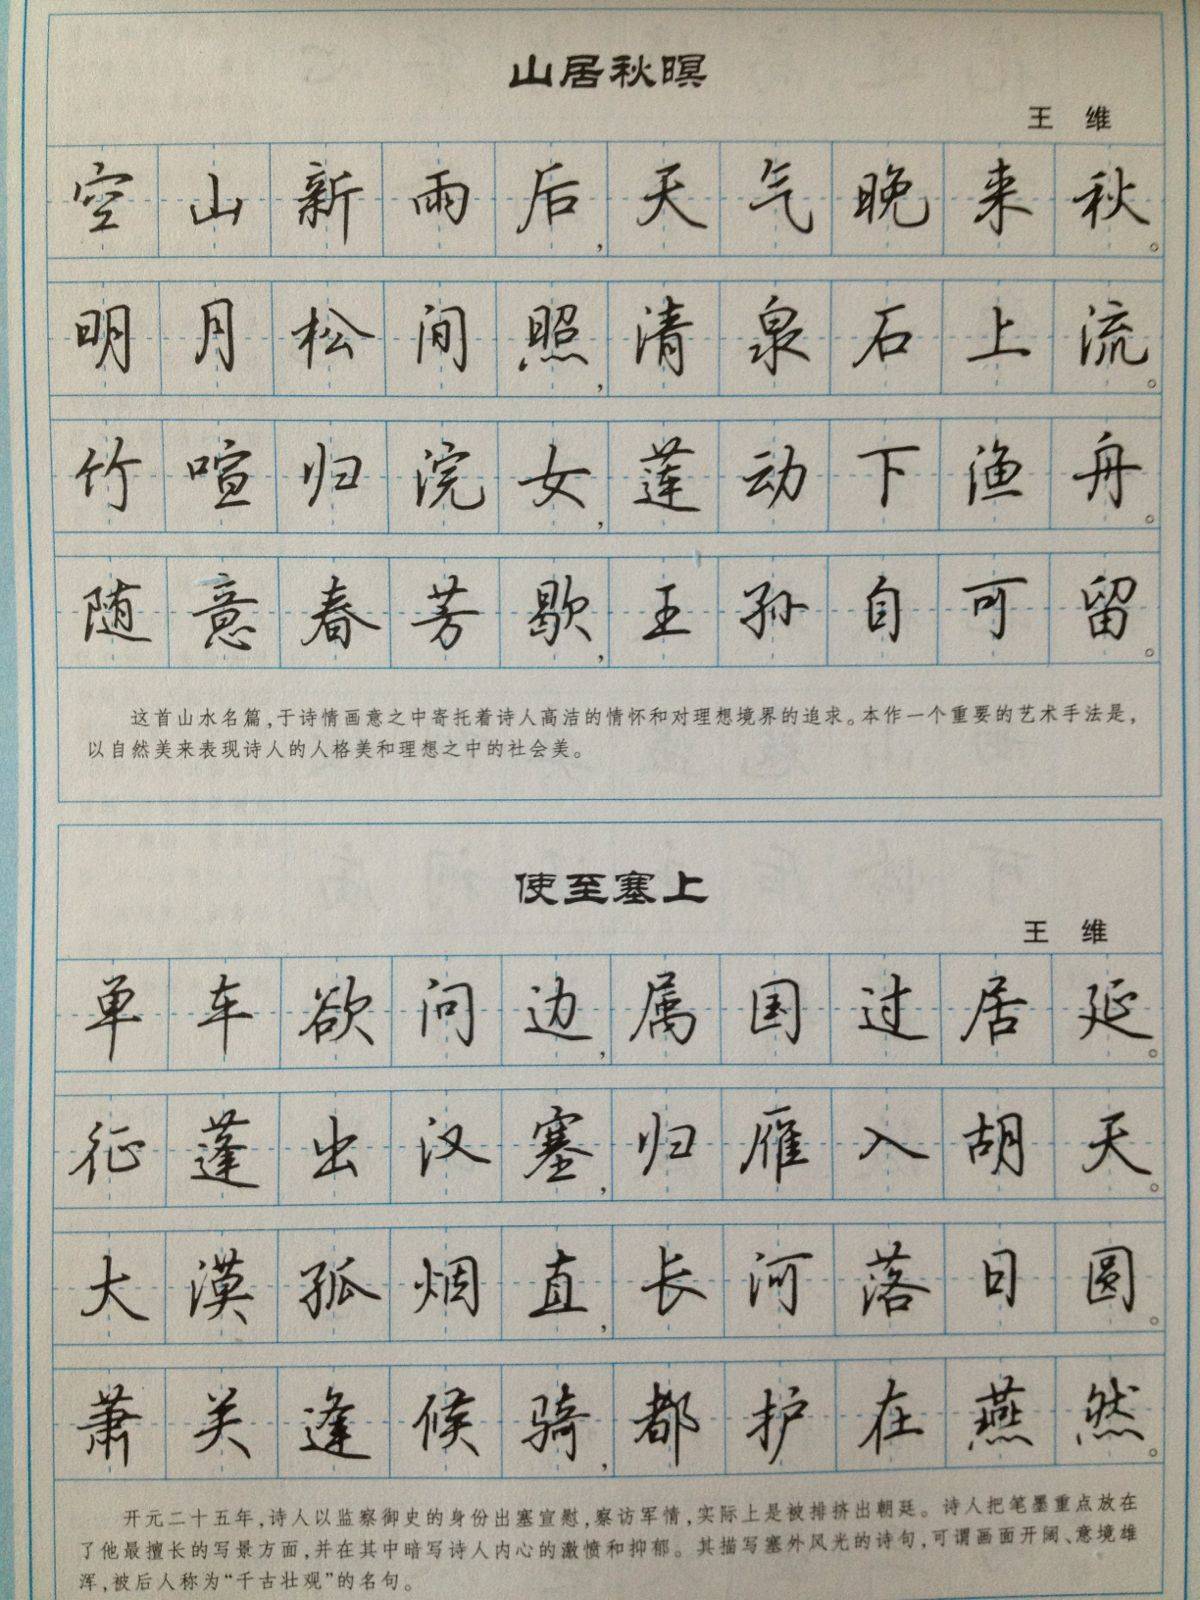 山居秋暝
王 维
空山新雨后,天气晚来秋。
明月松间照,清泉石上流。
竹喧归浣女,莲动下渔舟。
随意春芳歇,王孙自可留。
这首山水名篇,于诗情画意之中寄托着诗人高洁的情怀和对理想境界的追求。本作一个重要的艺术手法是,
以自然美来表现诗人的人格美和理想之中的社会美。
使至塞上
王 维
单车欲问边,属国过居延。
征蓬出汉塞,归雁入胡天。
大漠孤烟直,长河落日圆。
萧关逢候骑,都护在燕然。
开元二十五年,诗人以监察御史的身份出塞宣慰,察访军情,实际上是被排挤出朝廷。诗人把笔墨重点放在
了他最擅长的写景方面,并在其中暗写诗人内心的激愤和抑郁。其描写塞外风光的诗句,可谓画面开阔、意境雄
浑,被后人称为“千古壮观”的名句。